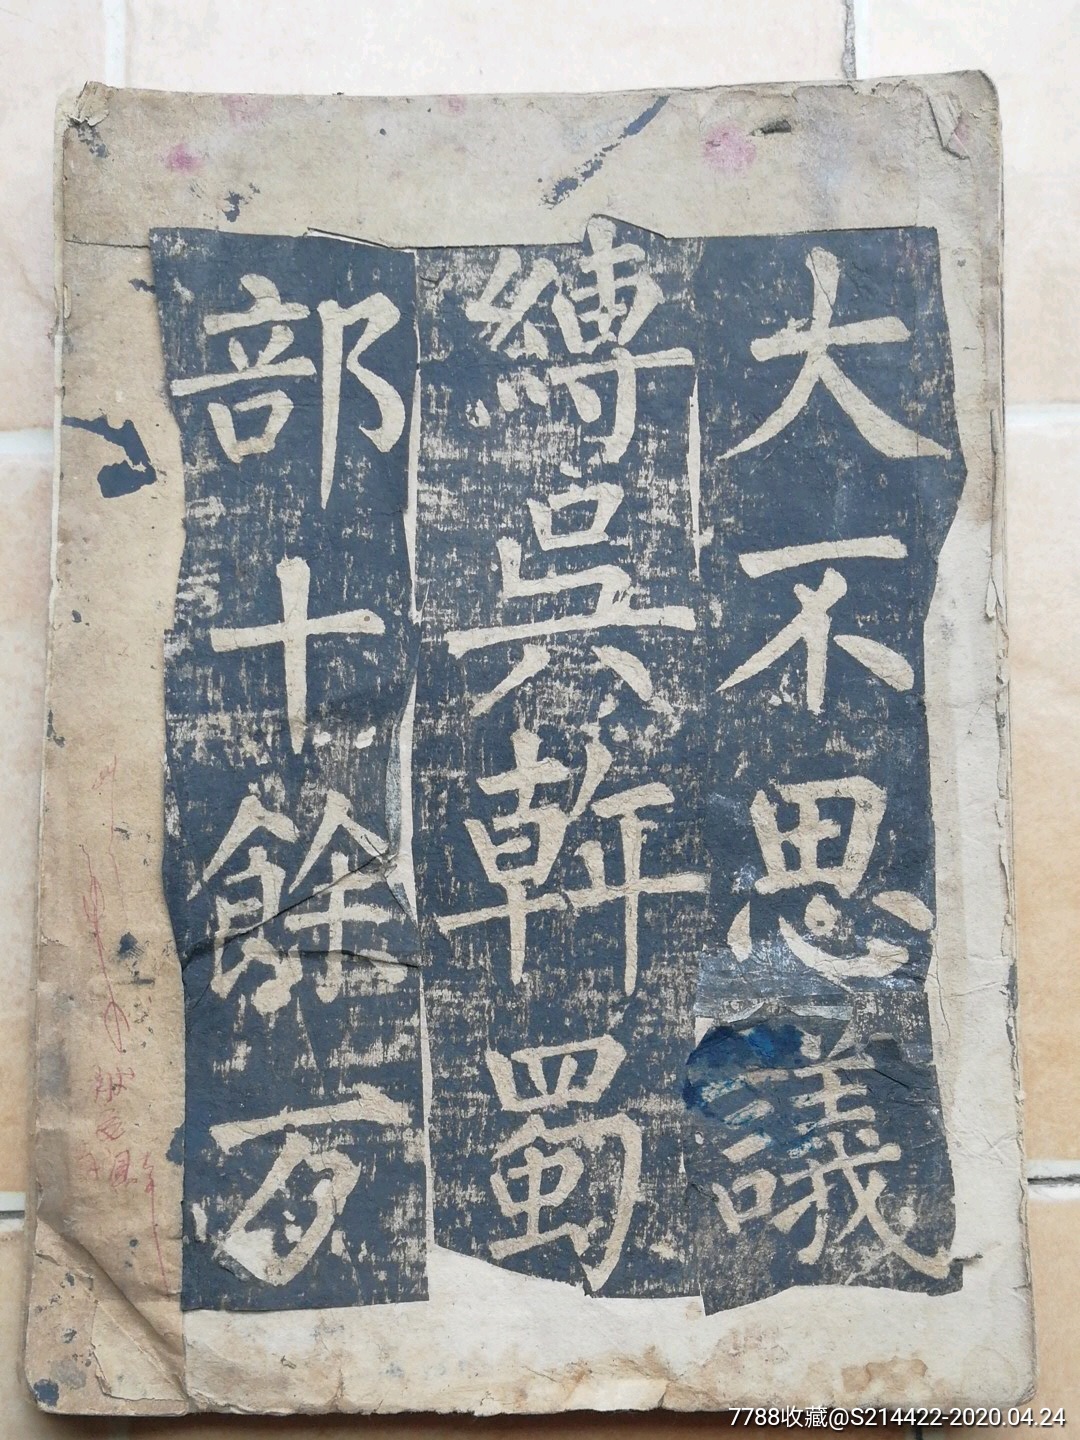 大不思議
縛吳幹蜀
部十餘万
7788收藏@S214422-2020.04.24